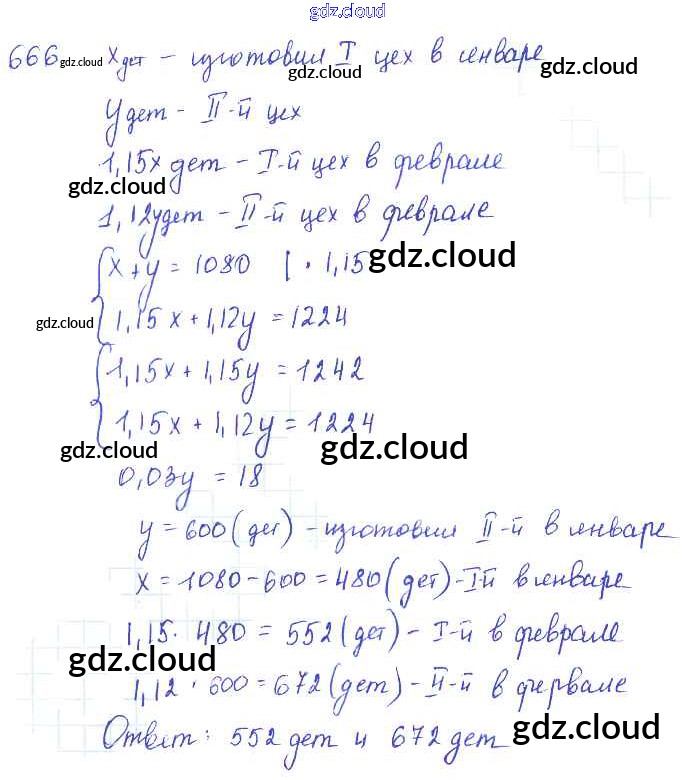 gdz.cloud
666 gdz.cloud x дет – изготовил I цех в январе
gdz.cloud gdz.cloud
y дет – II-й цех
1,15x дет – I-й цех в феврале
gdz.cloud
1,12y дет – II-й цех в феврале
x + y = 1080 | · 1,15
gdz.cloud
gdz.cloud
1,15x + 1,12y = 1224
1,15x + 1,15y = 1242
1,15x + 1,12y = 1224
gdz.cloud gdz.cloud
0,03y = 18
y = 600 (дет) – изготовил II-й в январе
x = 1080 – 600 = 480 (дет) – I-й в январе
1,15 · 480 = 552 (дет) – I-й в феврале
gdz.cloud
1,12 · 600 = 672 (дет) – II-й в фервале
gdz.cloud
Ответ: 552 дет и 672 дет